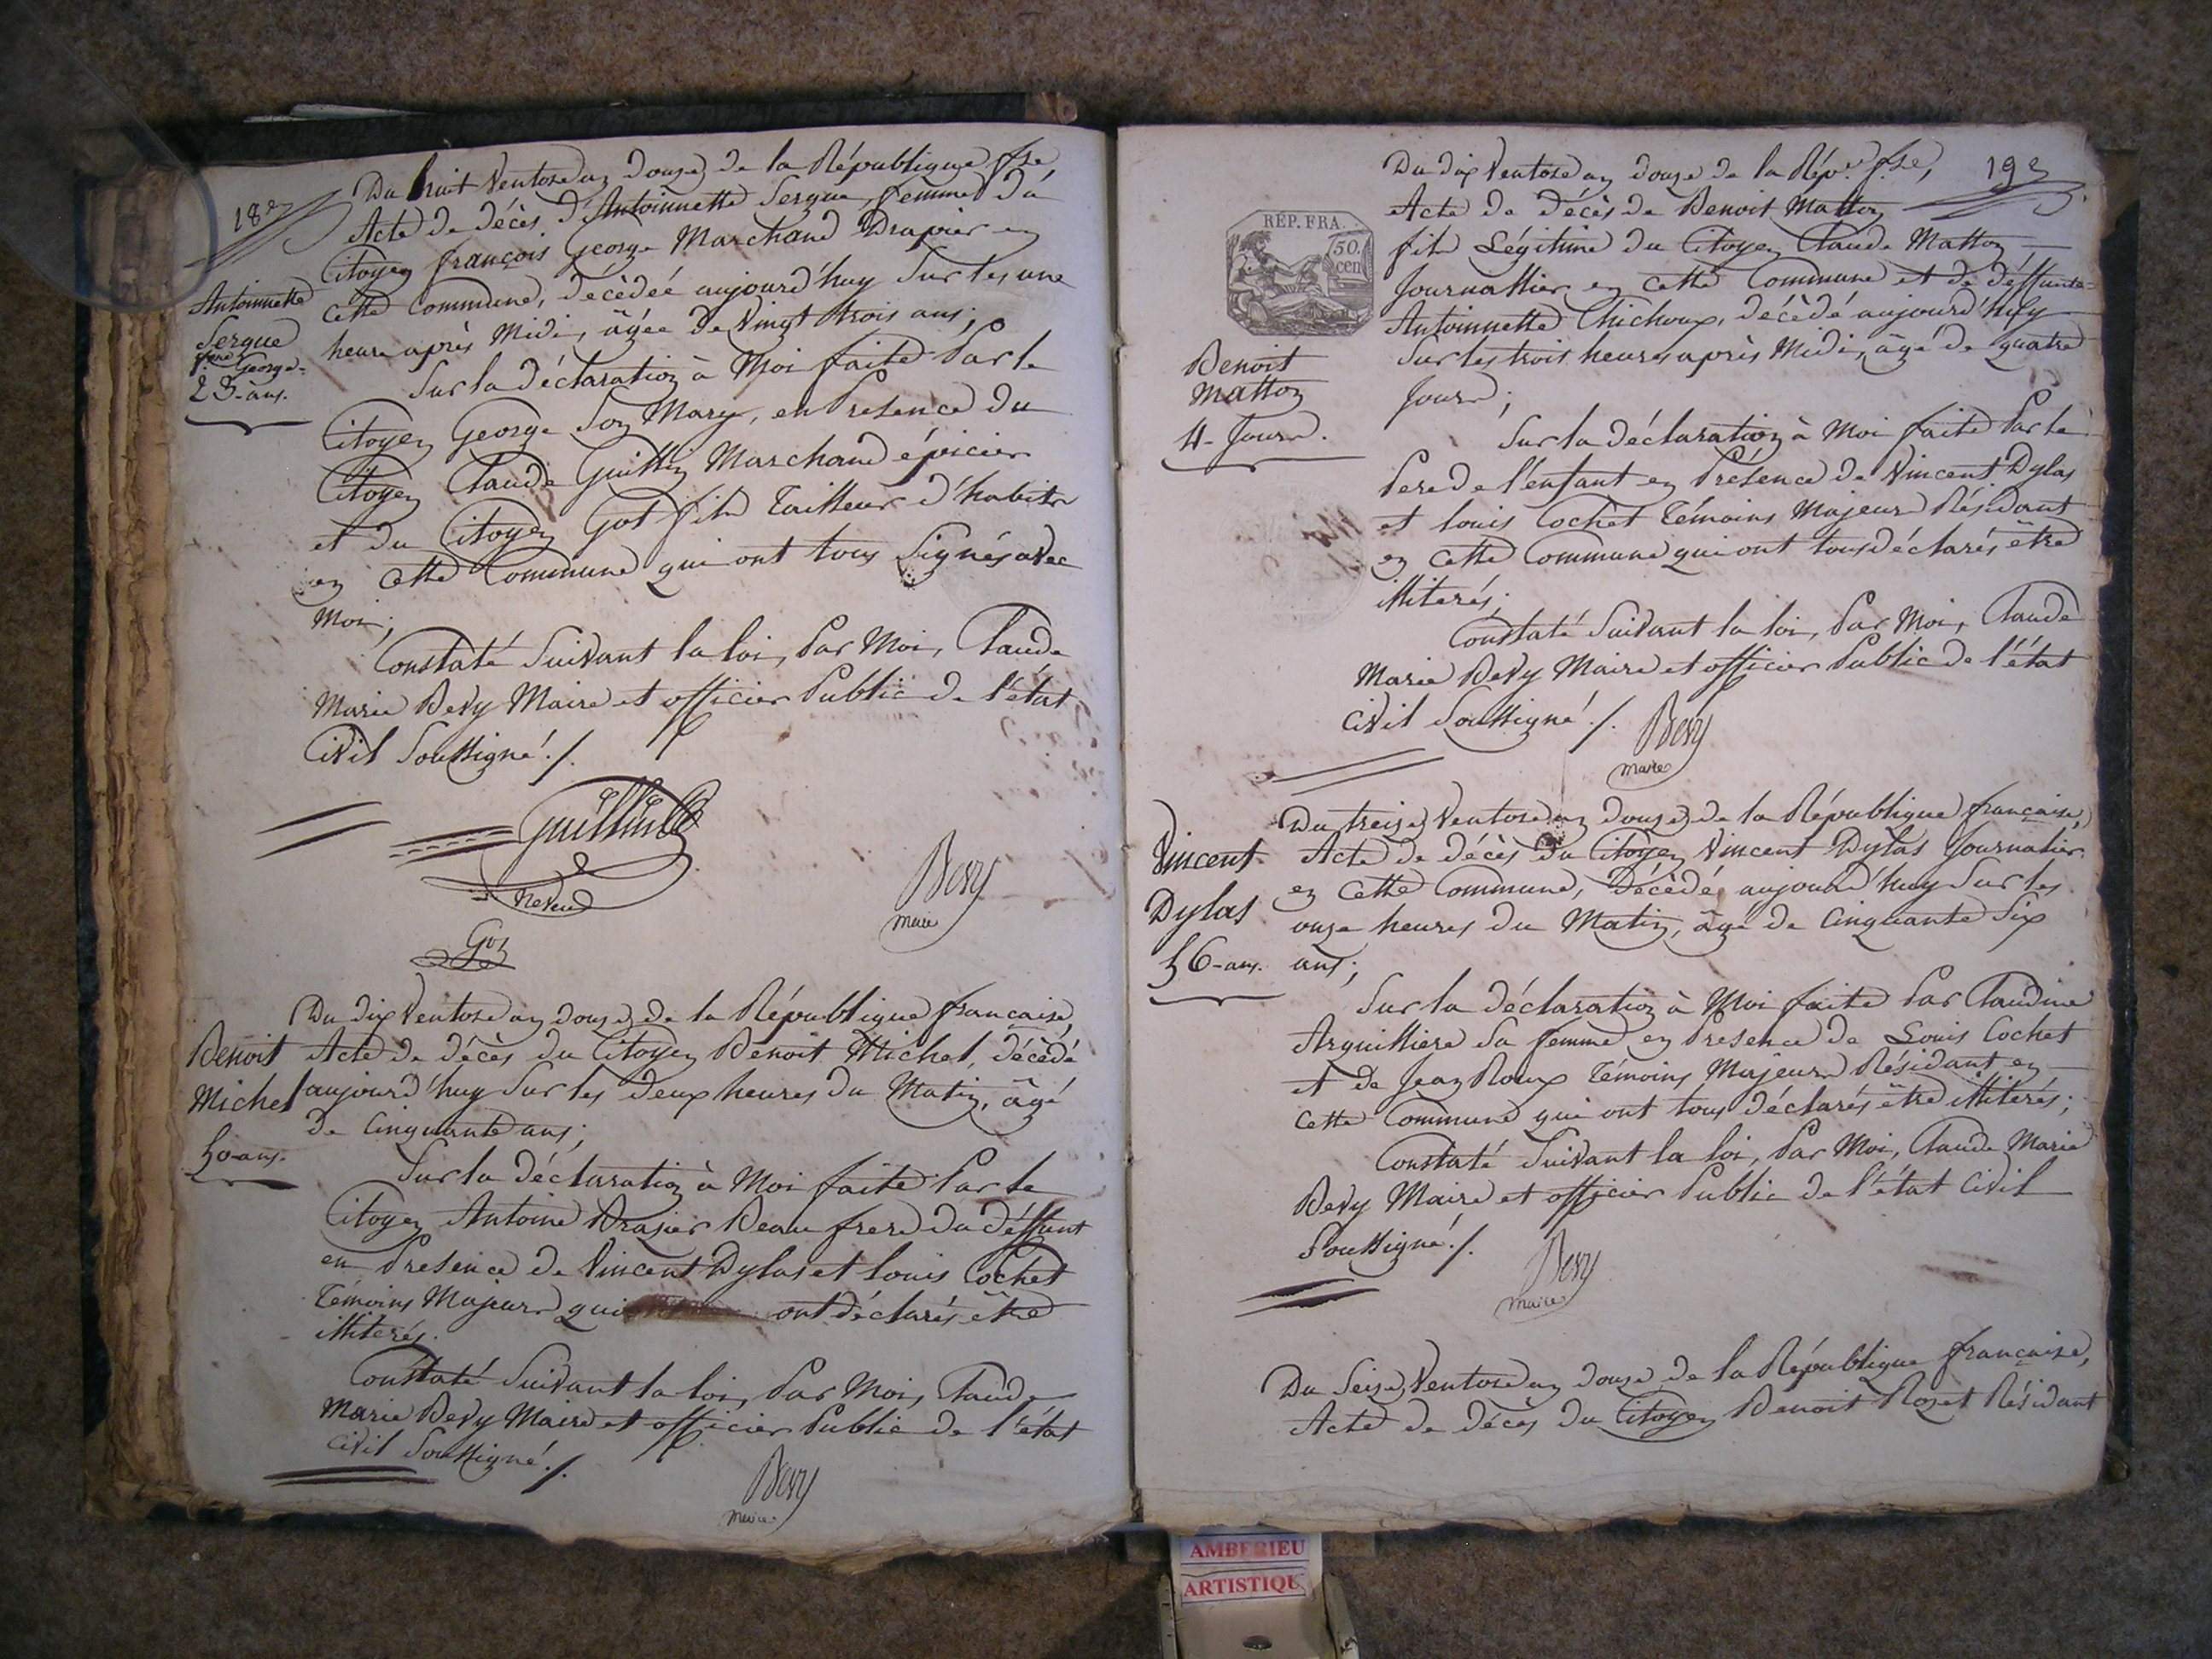 18
Du huit Ventose an douze de la République fse,
Acte de décès d'Antoinnette Sergue, femme du
Citoyen françois George Marchand Drapier en
cette Commune, décèdéé aujourd'huy Sur les une
heure après Midi, âgée de Vingt trois ans;
Antoinnette
Sergue
fme George
23-ans.
Sur la déclaration à Moi faite Par le
Citoyen George Son Mary, en Presence du
Citoyen Claude Guillin Marchand épicier
et du Citoyen Got fils Tailleur d'habits
en cette Commune qui ont tous Signés avec
Moi;
Constaté Suivant la loi, Par Moi, Claude
Marie Bevy Maire et officier Public de l'état
Civil Soussigné ./.
Guillin
Neveu
Bevy
Maire
Got
Du dix Ventose an douze de la République française,
Acte de décès du Citoyen Benoit Michel, décèdé
aujourd'huy Sur les deux heures du Matin, âgé
de Cinquante ans;
Benoit
Michel
50-ans.
Sur la déclaration à Moi faite Par le
Citoyen Antoine Brasier Beau frere du déffunt
en Presence de Vincent Dylas et Louis Cochet
Témoins Majeurs qui ont déclarés être
illiterés.
Constaté Suivant la loi, Par Moi, Claude
Marie Bevy Maire et officier Public de l'état
Civil Soussigné ./.
Bevy
Maire
Du dix Ventose an douze de la Répue fse,
19
Acte de décès de Benoit Matton
fils Légitime du Citoyen Claude Matton
Journallier en cette Commune et de déffunte
Antoinnette Chichoux, décèdé aujourd'huy
Sur les trois heures après Midi, âgé de quatre
Jours;
RÉP. FRA.
50.
cen
Benoit
Matton
4-Jours.
Sur la déclaration à Moi faite Par le
Pere de l'enfant en Présence de Vincent Dylas
et Louis Cochet Témoins Majeurs Résidant
en cette Commune qui ont tous déclarés être
illiterés;
Constaté Suivant la loi, Par Moi, Claude
Marie Bevy Maire et officier Public de l'état
Civil Soussigné ./.
Bevy
Maire
Du treize Ventose an douze de la République française,
Acte de décès du Citoyen Vincent Dylas Journalier
en cette Commune, Décèdé aujourd'huy Sur les
onze heures du Matin, âgé de Cinquante Six
ans;
Vincent
Dylas
56-ans.
Sur la déclaration à Moi faite Par Claudine
Arguilliere Sa femme en Presence de Louis Cochet
et de Jean Roux Témoins Majeurs Résidant en
cette Commune qui ont tous déclarés être illiterés;
Constaté Suivant la loi, Par Moi, Claude Marie
Bevy Maire et officier Public de l'état Civil
Soussigné ./.
Bevy
Maire
Du Seize Ventose an douze de la République française,
Acte de décès du Citoyen Benoit Rozet Résidant
AMBERIEU
ARTISTIQU